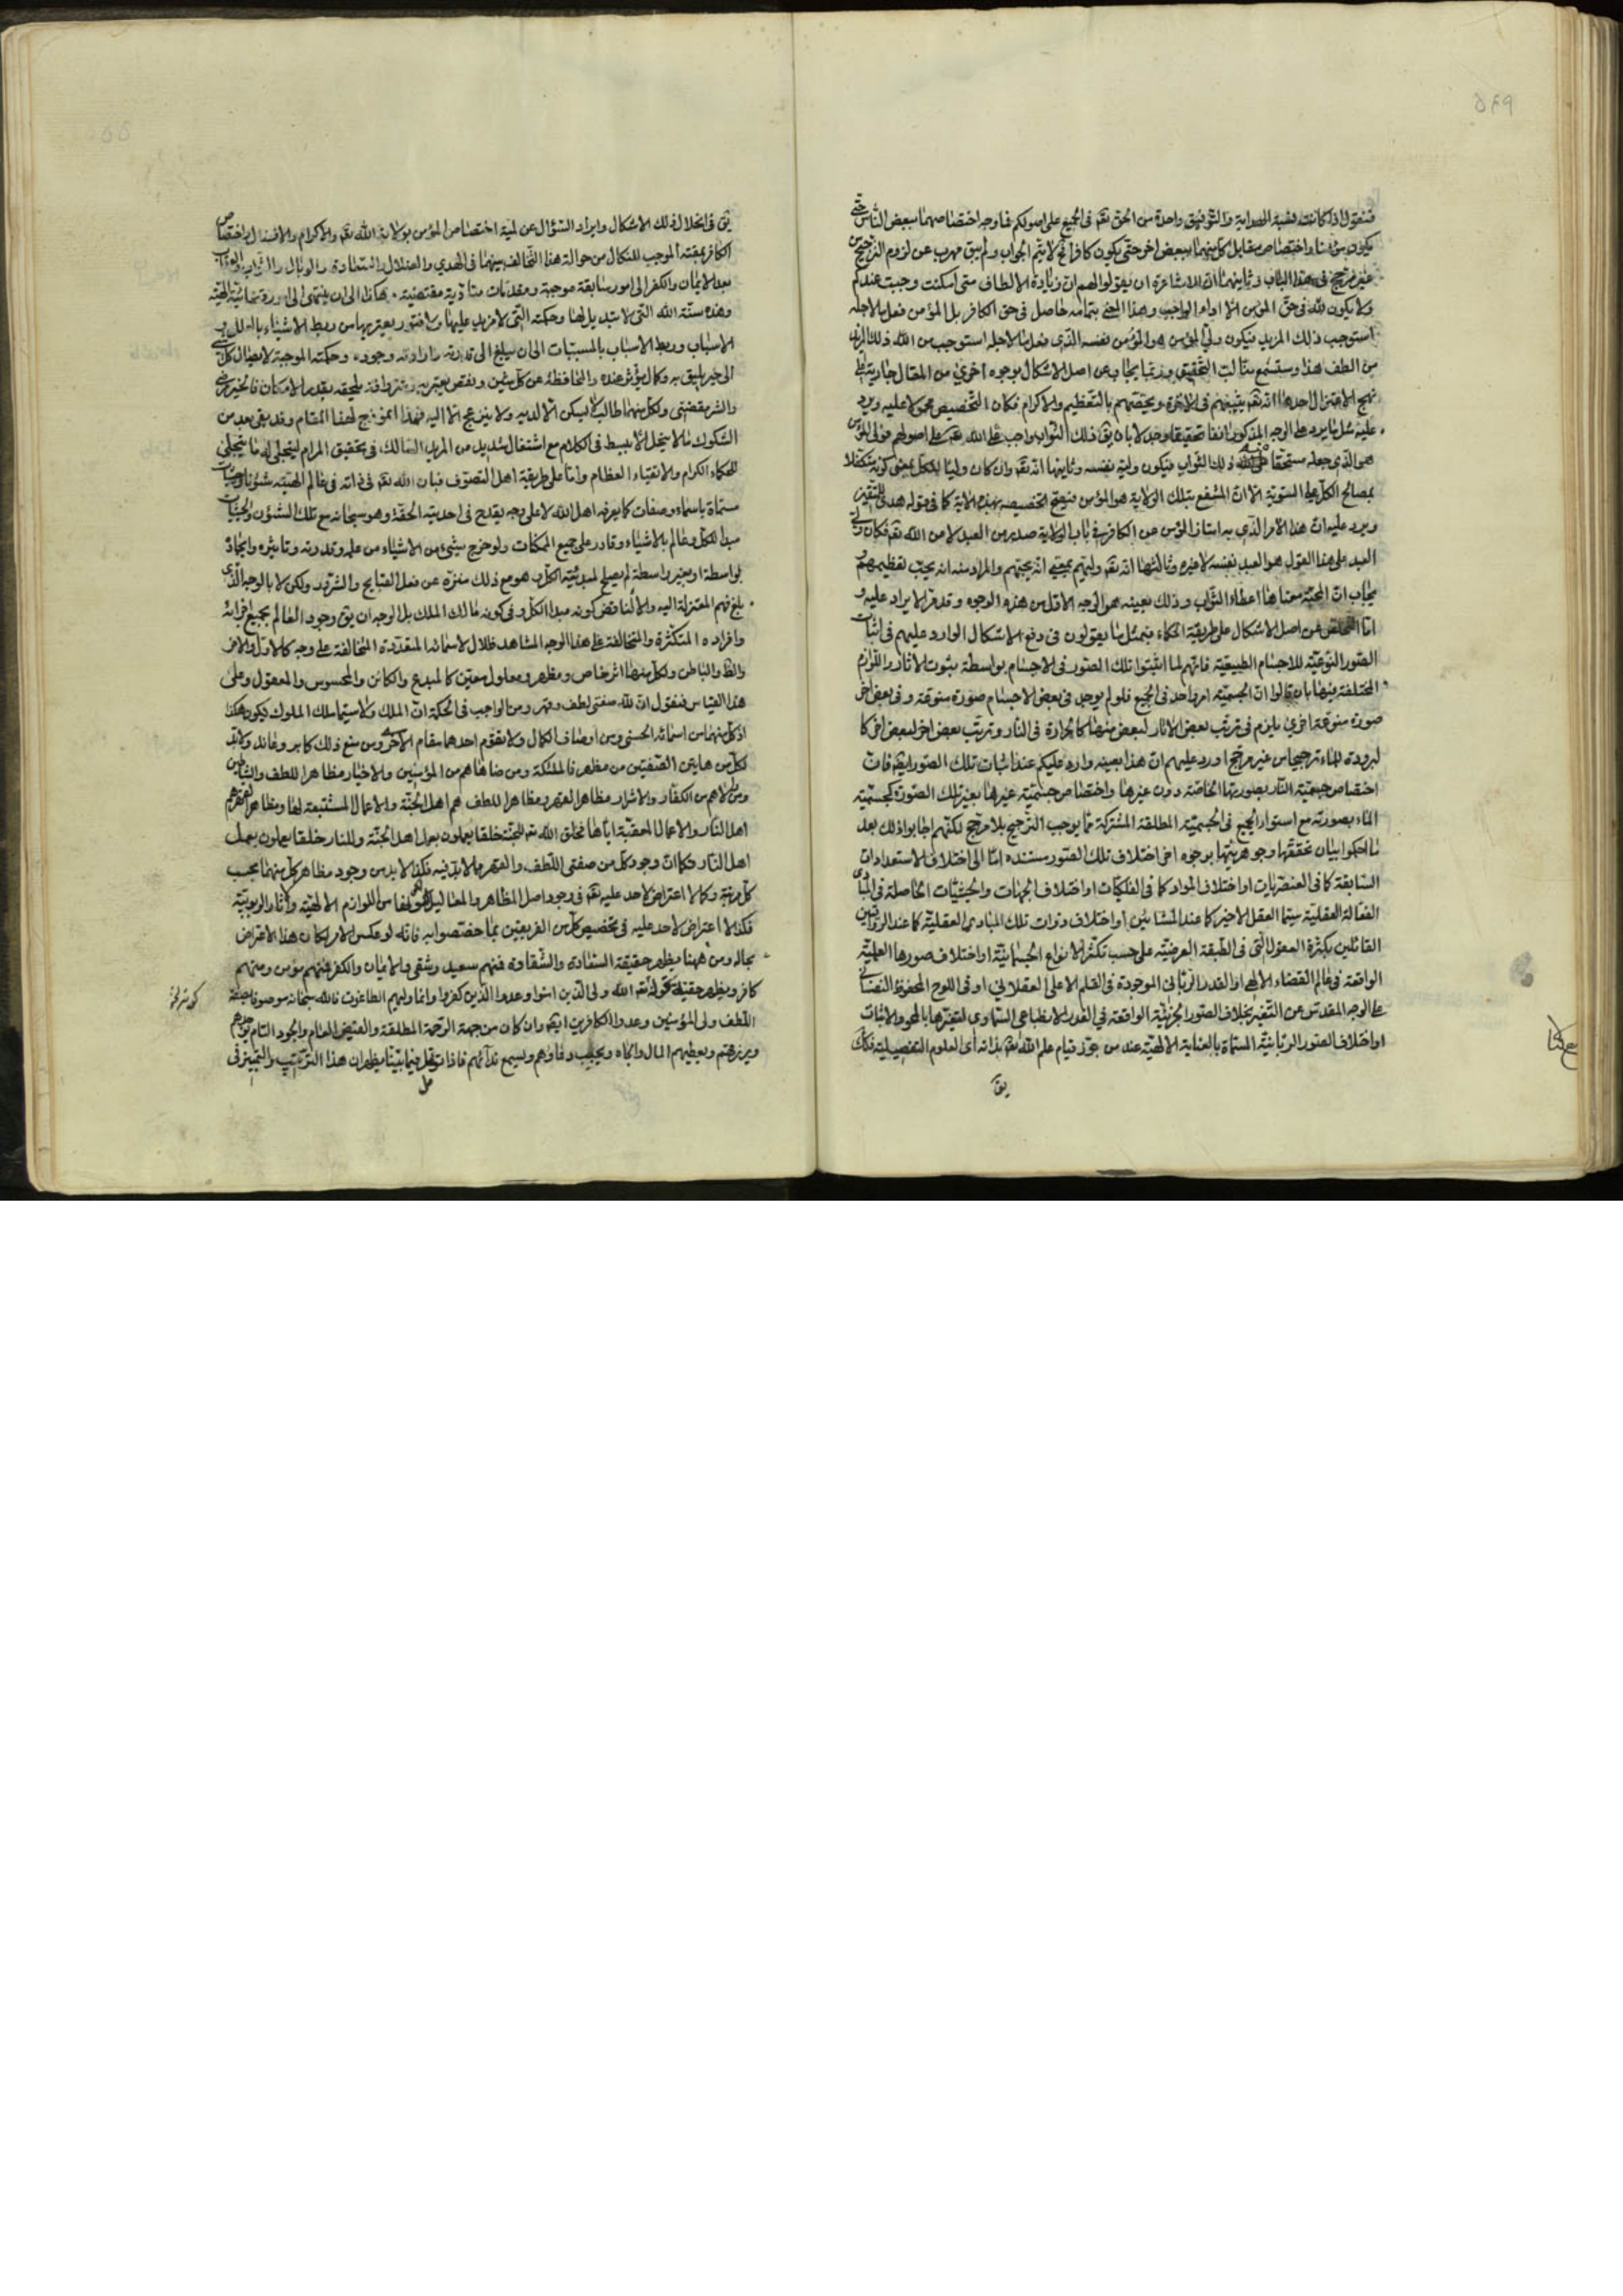 ۵۴۹
فنقول اذا كانت نسبة الهداية والتوفيق واحدة من الحق تعه فى الجميع على اصولكم فما وجه اختصاصهما ببعض الناس حتى
يكون مؤمنا واختصاص مقابل كل منهما ببعض اخر حتى يكون كافرا فح لا يتم الجواب ولم يبق مهرب عن لزوم الترجيح من
غير مرجح فى هذا الباب وثانيهما ان للاشاعرة ان يقولوا لهم ان زيادة الالطاف متى امكنت وجبت عندكم
ولا يكون لله فى حق المؤمن الا اداء الواجب وهذا المعنى بتمامه حاصل فى حق الكافر بل المؤمن فعل ما لاجله
استوجب ذلك المزيد فيكون ولى المؤمن هو المؤمن نفسه الذى فعل ما لاجله استوجب من الله ذلك المزيد
من اللطف هذا وستسمع منا لب التحقيق وربما يجاب عن اصل الاشكال بوجوه اخرى من المقال جارية على
نهج الاعتزال احدها انه تعه يثيبهم فى الاخرة ويخصهم بالتعظيم والاكرام فكان التخصيص محمولا عليه ويرد
عليه مثل ما يرد على الوجه المذكور انفا تحقيقا وجدلا بان يق ذلك الثواب واجب على الله تعه على اصولهم فولى المؤمن
هو الذى جعله مستحقا على الله ذلك الثواب فيكون وليه نفسه وثانيها انه تعه وان كان وليا للكل بمعنى كونه متكفلا
بمصالح الكل على السوية الا ان المنتفع بتلك الولاية هو المؤمن فيصح تخصيصه بهذه الاية كما فى قوله هدى للمتقين
ويرد عليه ان هذا الامر الذى به امتاز المؤمن عن الكافر فى باب الولاية صدر من العبد لا من الله تعه فكان ولى
العبد على هذا القول هو العبد نفسه لا غيره وثالثها انه تعه وليهم بمعنى انه يحبهم والمراد منه انه يحب تعظيمهم و
يجاب ان المحبة معناها اعطاء الثواب وذلك بعينه هو الوجه الاول من هذه الوجوه وقد مر الايراد عليه و
اما التخلص عن اصل الاشكال على طريقة الحكماء فبمثل ما يقولون فى دفع الاشكال الوارد عليهم فى اثبات
الصور النوعية للاجسام الطبيعية فانهم لما اثبتوا تلك الصور فى الاجسام بواسطة ثبوت الاثار واللوازم
المختلفة فيها بان قالوا ان الجسمية امر واحد فى الجميع فلو لم يوجد فى بعض الاجسام صورة منوعة وفى بعض اخر
صورة منوعة اخرى يلزم فى ترتب بعض الاثار لبعض منها كالحرارة فى النار وترتب بعض اخر لبعض اخر كا
لبرودة للماء ترجيحا من غير مرجح اورد عليهم ان هذا بعينه وارد عليكم عند اثبات تلك الصور ايضا فان
اختصاص جسمية النار بصورتها الخاصة دون غيرها واختصاص جسمية غيرها بغير تلك الصورة كجسمية
الماء بصورته مع استواء الجميع فى الجسمية المطلقة المشتركة مما يوجب الترجيح بلا مرجح لكنهم اجابوا ذلك بعد
ما احكموا بيان تحققها وجوهريتها بوجوه اخر اختلاف تلك الصور مستنده اما الى اختلاف الاستعدادات
السابقة كما فى العنصريات او اختلاف المواد كما فى الفلكيات او اختلاف الجهات والحيثيات الحاصلة فى المبادى
الفعالة العقلية سيما العقل الاخير كما عند المشائين او اختلاف ذوات تلك المبادى العقلية كما عند الرواقيين
القائلين بكثرة العقول التى فى الطبقة العرضية على حسب تكثر الانواع الجسمانية او اختلاف صورها العلمية
الواقعة فى عالم القضاء الالهى او القدر الربانى الموجودة فى القلم الاعلى العقلانى او فى اللوح المحفوظ النفسانى
على الوجه المقدس عن التغير بخلاف الصور الجزئية الواقعة فى القدر الانطباعى السماوى لتغيرها بالمحو والاثبات
او اختلاف الصور الربانية المسماة بالعناية الالهية عند من جوز قيام علم الله تعه بذاته اى العلوم التفصيلية فكك
يق
يق فى انحلال ذلك الاشكال وايراد السؤال عن لمية اختصاص المؤمن بولاية الله تعه والاكرام والافضال واختصاص
الكافر بمقته الموجب للنكال من حوالة هذا التخالف بينهما فى الهدى والضلال والسعادة والوبال والثواب والعقاب
بعد الايمان والكفر الى امور سابقة موجبة ومقدمات متأدية مقتضية. هكذا الى ان ينتهى الى امور قضائية الهية
وهذه سنة الله التى لا تبديل لها وحكمته التى لا مزيد عليها ولا فتور يعتريها من ربط الاشياء بالعلل و
الاسباب وربط الاسباب بالمسببات الى ان يبلغ الى قدرته وارادته وجوده وحكمته الموجبة لايصال كل شئ
الى خير يليق به وكمال يؤثر عنده والمحافظة عن كل شين ونقص يعتريه وشر وافة يلحقه بقدر الامكان فالخير مرضى
والشر مقضى ولكل منهما طالب لا يسكن الا لديه ولا ينزعج الا اليه فهذا انموذج لهذا المقام وقد بقى بعد من
الشكوك ما لا ينحل الا ببسط فى الكلام مع اشتغال شديد من المريد السالك فى تحقيق المرام ليتجلى له ما يتجلى
للحكماء الكرام والاتقياء العظام واما على طريقة اهل التصوف فبان الله تعه فى ذاته فى عالم الهيته شؤنا وحيثيات
مسماة باسماء وصفات كما يعرفه اهل الله لا على وجه يقدح فى احديته الحقة وهو سبحانه مع تلك الشؤن والحيثيات
مبدا للكل وعالم بالاشياء وقادر على جميع الممكنات ولو خرج شئ من الاشياء من علمه وقدرته وتاثيره وايجاده
بواسطة او بغير واسطة لم يصلح لمبدئية الكل و هو مع ذلك منزه عن فعل القبايح والشرور ولكن لا بالوجه الذى
بلغ فهم المعتزلة اليه والا لناقض كونه مبدا الكل وفى كونه مالك الملك بل الوجه ان يق وجود العالم بجميع اجزائه
وافراده المتكثرة والمتخالفة على هذا الوجه المشاهد ظلال لاسمائه المتعددة المتخالفة على وجه كالاول والاخر
والظ والباطن ولكل منها اثر خاص ومظهر ومعلول معين كالمبدع والكائن والمحسوس والمعقول وعلى
هذا القياس فنقول ان لله صفتى لطف وقهر ومن الواجب فى الحكمة ان الملك ولا سيما ملك الملوك يكون هكذا
اذ كل منهما من اسمائه الحسنى ومن اوصاف الكمال ولا يقوم احدهما مقام الاخرى ومن منع ذلك كابر وعاند ولا بد
لكل من هاتين الصفتين من مظهر فالملئكة ومن ضاهاهم من المؤمنين والاخيار مظاهرا للطف والشياطين
ومن والاهم من الكفار والاشرار مظاهرا لقهر ومظاهرا للطف هم اهل الجنة والاعمال المستتبعة لها ومظاهر القهر هم
اهل النار والاعمال المعقبة اياها فخلق الله تعه للجنة خلقا يعملون بعمل اهل الجنة وللنار خلقا يعملون بعمل
اهل النار فكما ان وجود كل من صفتى اللطف والقهر مما لابد فيه فكذا لابد من وجود مظاهر كل منهما بحسب
كل مرتبة وكما لا اعتراض لاحد عليه تعه فى وجود اصل المظاهر والمعاليل لهما من اللوازم الالهية واثار الربوبية
فكذا لا اعتراض لاحد عليه فى تخصيص كل من الفريقين بما خصصوا به فانه لو عكس الامر لكان هذا الاعتراض
بحاله ومن ههنا يظهر حقيقة السعادة والشقاوة فمنهم سعيد وشقى والايمان والكفر فمنهم مؤمن ومنهم
كافر ويظهر حقيقة قوله تعه الله ولى الذين امنوا وعدوا الذين كفروا وانما وليهم الطاغوت فالله سبحانه موصوفا بصفة
اللطف ولى المؤمنين وعدوا الكافرين ايضا وان كان من جهة الرحمة المطلقة والفيض العام والجود التام يوجدهم
ويرزقهم ويعطيهم المال والجاه ويجيب دعاؤهم ويسمع ندآئهم فاذا تؤمل فيما بينا يظهر ان هذا الترتيب والتمييز فى